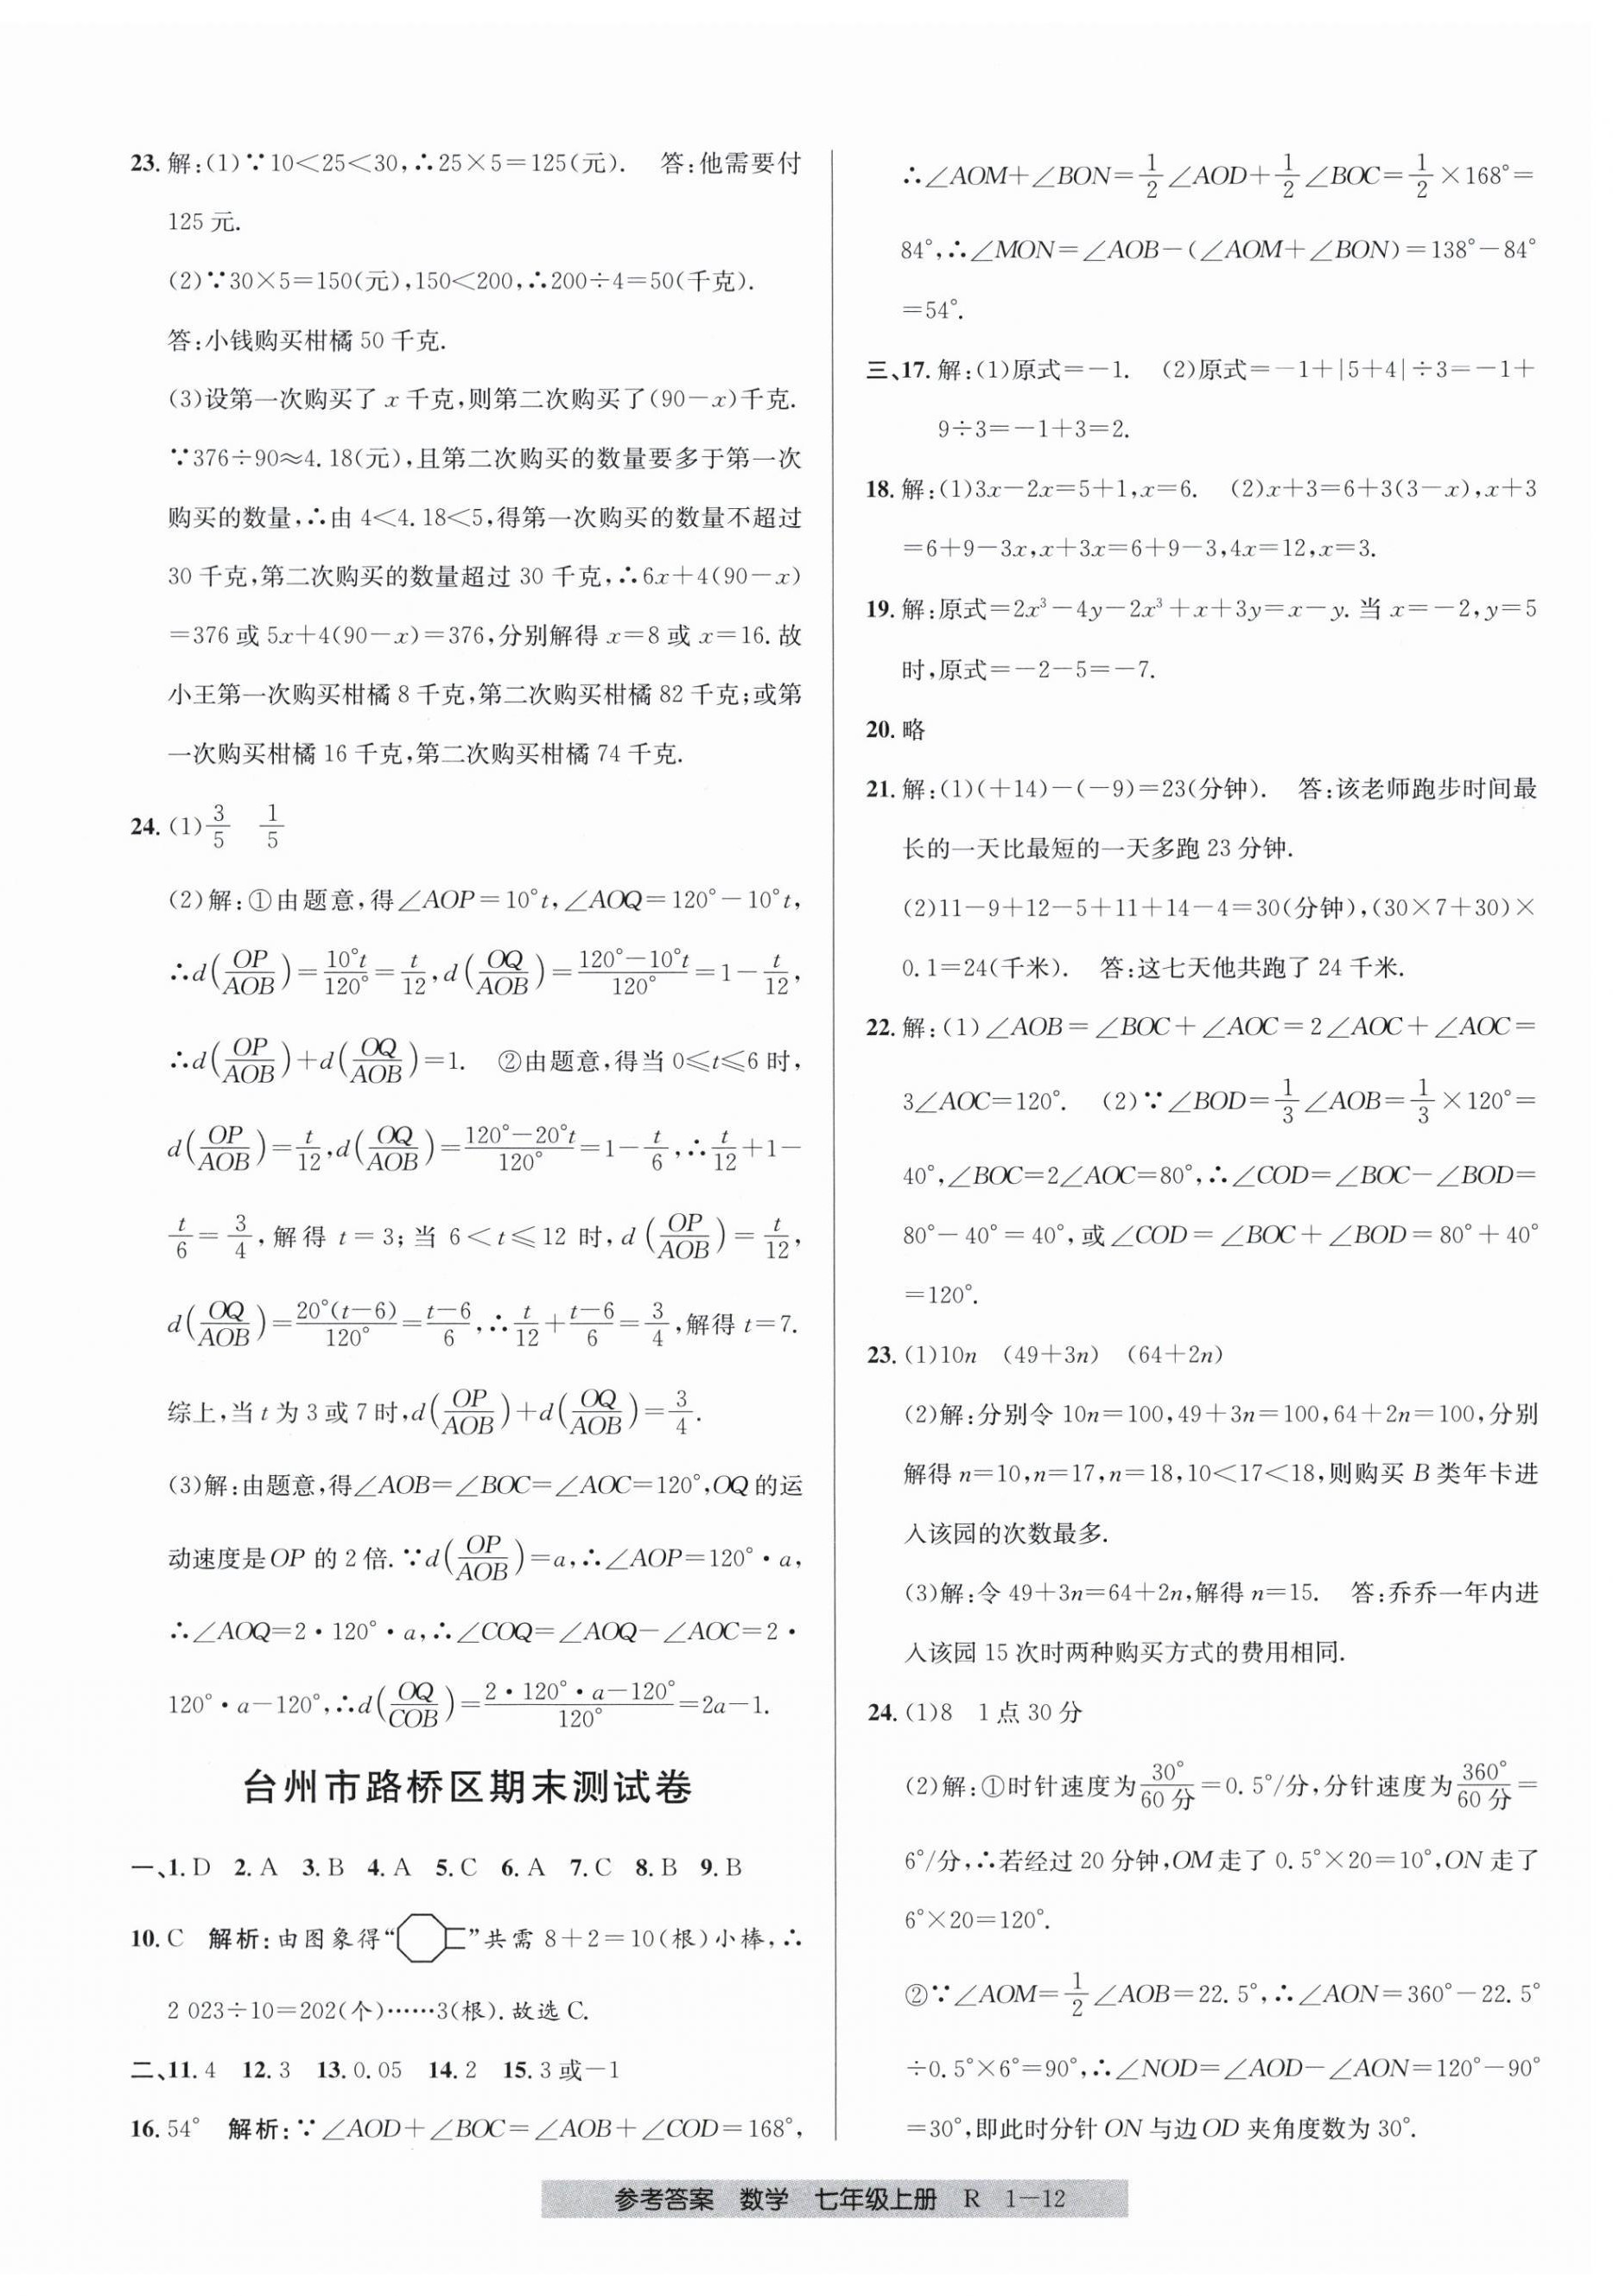 23. 解:(1)∵10<25<30,∴25×5=125(元). 答:他需要付
125元.
(2)∵30×5=150(元),150<200,∴200÷4=50(千克).
答:小钱购买柑橘50千克.
(3)设第一次购买了x千克,则第二次购买了(90-x)千克.
∵376÷90≈4.18(元),且第二次购买的数量要多于第一次
购买的数量,∴由4<4.18<5,得第一次购买的数量不超过
30千克,第二次购买的数量超过30千克,∴6x+4(90-x)
=376或5x+4(90-x)=376,分别解得x=8或x=16.故
小王第一次购买柑橘8千克,第二次购买柑橘82千克;或第
一次购买柑橘16千克,第二次购买柑橘74千克.
24. (1)3/5 1/5
(2)解:①由题意,得∠AOP=10°t,∠AOQ=120°-10°t,
∴d(OP/AOB)=10°t/120°=t/12,d(OQ/AOB)=(120°-10°t)/120°=1-t/12,
∴d(OP/AOB)+d(OQ/AOB)=1. ②由题意,得当0≤t≤6时,
d(OP/AOB)=t/12,d(OQ/AOB)=(120°-20°t)/120°=1-t/6,∴t/12+1-
t/6=3/4,解得t=3;当6<t≤12时,d(OP/AOB)=t/12,
d(OQ/AOB)=20°(t-6)/120°=(t-6)/6,∴t/12+(t-6)/6=3/4,解得t=7.
综上,当t为3或7时,d(OP/AOB)+d(OQ/AOB)=3/4.
(3)解:由题意,得∠AOB=∠BOC=∠AOC=120°,OQ的运
动速度是OP的2倍.∵d(OP/AOB)=a,∴∠AOP=120°·a,
∴∠AOQ=2·120°·a,∴∠COQ=∠AOQ-∠AOC=2·
120°·a-120°,∴d(OQ/COB)=(2·120°·a-120°)/120°=2a-1.
台州市路桥区期末测试卷
一、1. D 2. A 3. B 4. A 5. C 6. A 7. C 8. B 9. B
10. C 解析:由图象得“”共需8+2=10(根)小棒,∴
2 023÷10=202(个)……3(根).故选C.
二、11. 4 12. 3 13. 0.05 14. 2 15. 3或-1
16. 54° 解析:∵∠AOD+∠BOC=∠AOB+∠COD=168°,
∴∠AOM+∠BON=1/2∠AOD+1/2∠BOC=1/2×168°=
84°,∴∠MON=∠AOB-(∠AOM+∠BON)=138°-84°
=54°.
三、17. 解:(1)原式=-1. (2)原式=-1+|5+4|÷3=-1+
9÷3=-1+3=2.
18. 解:(1)3x-2x=5+1,x=6. (2)x+3=6+3(3-x),x+3
=6+9-3x,x+3x=6+9-3,4x=12,x=3.
19. 解:原式=2x³-4y-2x³+x+3y=x-y.当x=-2,y=5
时,原式=-2-5=-7.
20. 略
21. 解:(1)(+14)-(-9)=23(分钟). 答:该老师跑步时间最
长的一天比最短的一天多跑23分钟.
(2)11-9+12-5+11+14-4=30(分钟),(30×7+30)×
0.1=24(千米). 答:这七天他共跑了24千米.
22. 解:(1)∠AOB=∠BOC+∠AOC=2∠AOC+∠AOC=
3∠AOC=120°. (2)∵∠BOD=1/3∠AOB=1/3×120°=
40°,∠BOC=2∠AOC=80°,∴∠COD=∠BOC-∠BOD=
80°-40°=40°,或∠COD=∠BOC+∠BOD=80°+40°
=120°.
23. (1)10n (49+3n) (64+2n)
(2)解:分别令10n=100,49+3n=100,64+2n=100,分别
解得n=10,n=17,n=18,10<17<18,则购买B类年卡进
入该园的次数最多.
(3)解:令49+3n=64+2n,解得n=15. 答:乔乔一年内进
入该园15次时两种购买方式的费用相同.
24. (1)8 1点30分
(2)解:①时针速度为30°/60分=0.5°/分,分针速度为360°/60分=
6°/分,∴若经过20分钟,OM走了0.5°×20=10°,ON走了
6°×20=120°.
②∵∠AOM=1/2∠AOB=22.5°,∴∠AON=360°-22.5°
÷0.5°×6°=90°,∴∠NOD=∠AOD-∠AON=120°-90°
=30°,即此时分针ON与边OD夹角度数为30°.
参考答案 数学 七年级上册 R 1-12